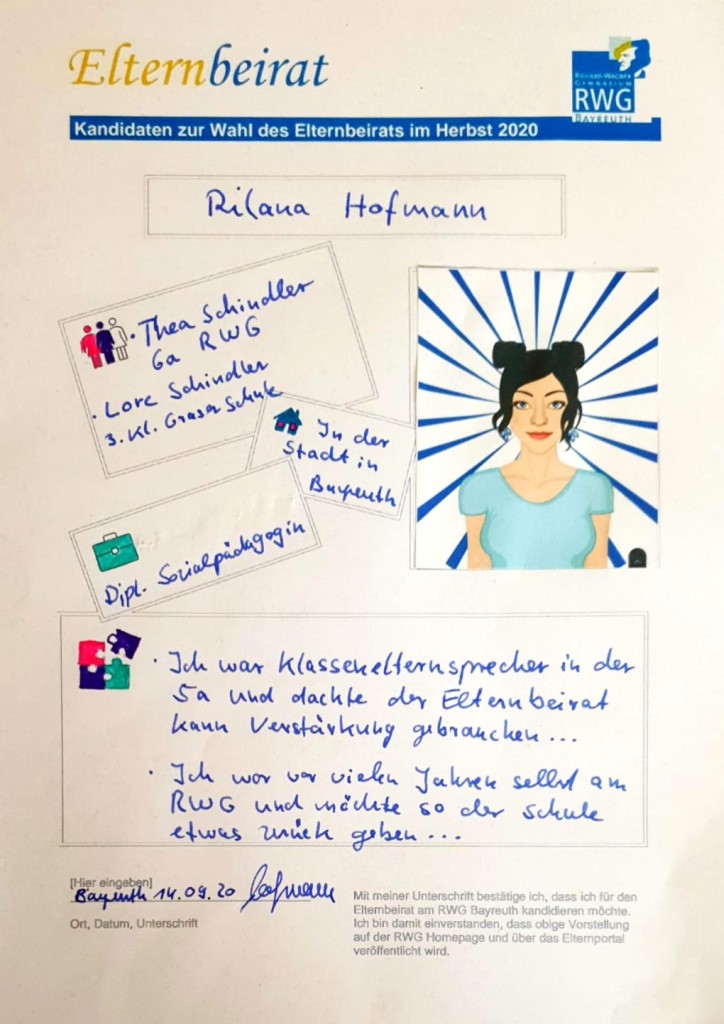 Elternbeirat
RICHARD-WAGNER
GYMNASIUM
RWG
BAYREUTH
Kandidaten zur Wahl des Elternbeirats im Herbst 2020
Rilana Hofmann
· Thea Schindler
6a RWG
· Lore Schindler
3. Kl. Graser Schule
In der
Stadt in
Bayreuth
Dipl. Sozialpädagogin
· Ich war Klassenelternsprecher in der
5a und dachte der Elternbeirat
kann Verstärkung gebrauchen...
· Ich war vor vielen Jahren selbst am
RWG und möchte so der Schule
etwas zurück geben...
[Hier eingeben]
Bayreuth 14.09.20 Hofmann
Ort, Datum, Unterschrift
Mit meiner Unterschrift bestätige ich, dass ich für den
Elternbeirat am RWG Bayreuth kandidieren möchte.
Ich bin damit einverstanden, dass obige Vorstellung
auf der RWG Homepage und über das Elternportal
veröffentlicht wird.